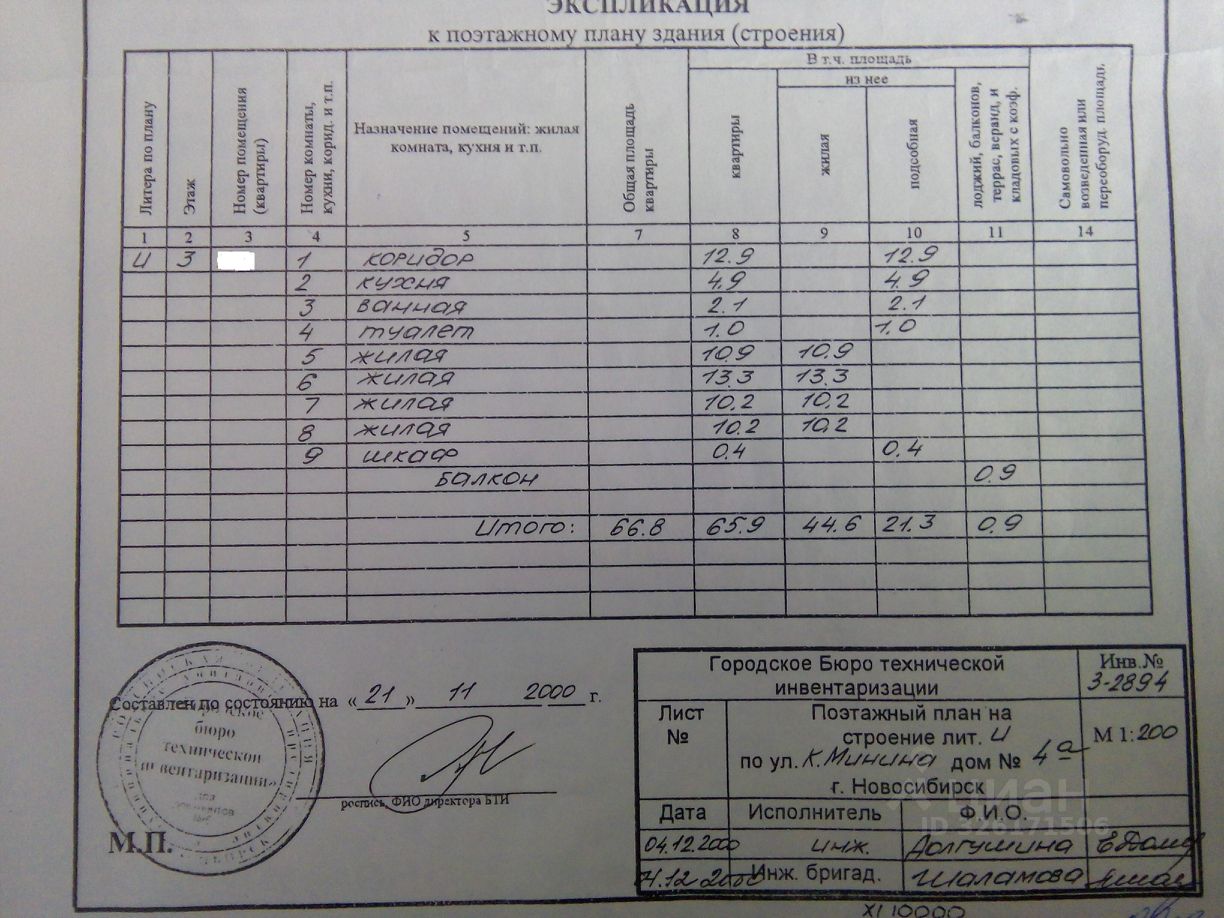 ЭКСПЛИКАЦИЯ
к поэтажному плану здания (строения)
Литера по плану
Этаж
Номер помещения (квартиры)
Номер комнаты, кухни, корид. и т.п.
Назначение помещений: жилая комната, кухня и т.п.
Общая площадь квартиры
В т.ч. площадь
из нее
квартиры
жилая
подсобная
лоджий, балконов, террас, веранд, и кладовых с коэф.
Самовольно возведенная или переоборуд. площадь
1 2 3 4 5 7 8 9 10 11 14
И 3 1 коридор 12.9 12.9
2 кухня 4.9 4.9
3 ванная 2.1 2.1
4 туалет 1.0 1.0
5 жилая 10.9 10.9
6 жилая 13.3 13.3
7 жилая 10.2 10.2
8 жилая 10.2 10.2
9 шкаф 0.4 0.4
Балкон 0.9
Итого: 66.8 65.9 44.6 21.3 0.9
Составлен по состоянию на «21» 11 2000 г.
бюро
технической
инвентаризации»
роспись, ФИО директора БТИ
М.П.
Городское Бюро технической инвентаризации
Инв.№
3-2894
Лист №
Поэтажный план на
строение лит. И
по ул. К.Минина дом № 4а
г. Новосибирск
М 1:200
Дата Исполнитель Ф.И.О.
04.12.2000 инж. Долгушина
Инж. бригад. Шаламова
циан
ID 326171506
XI 10000